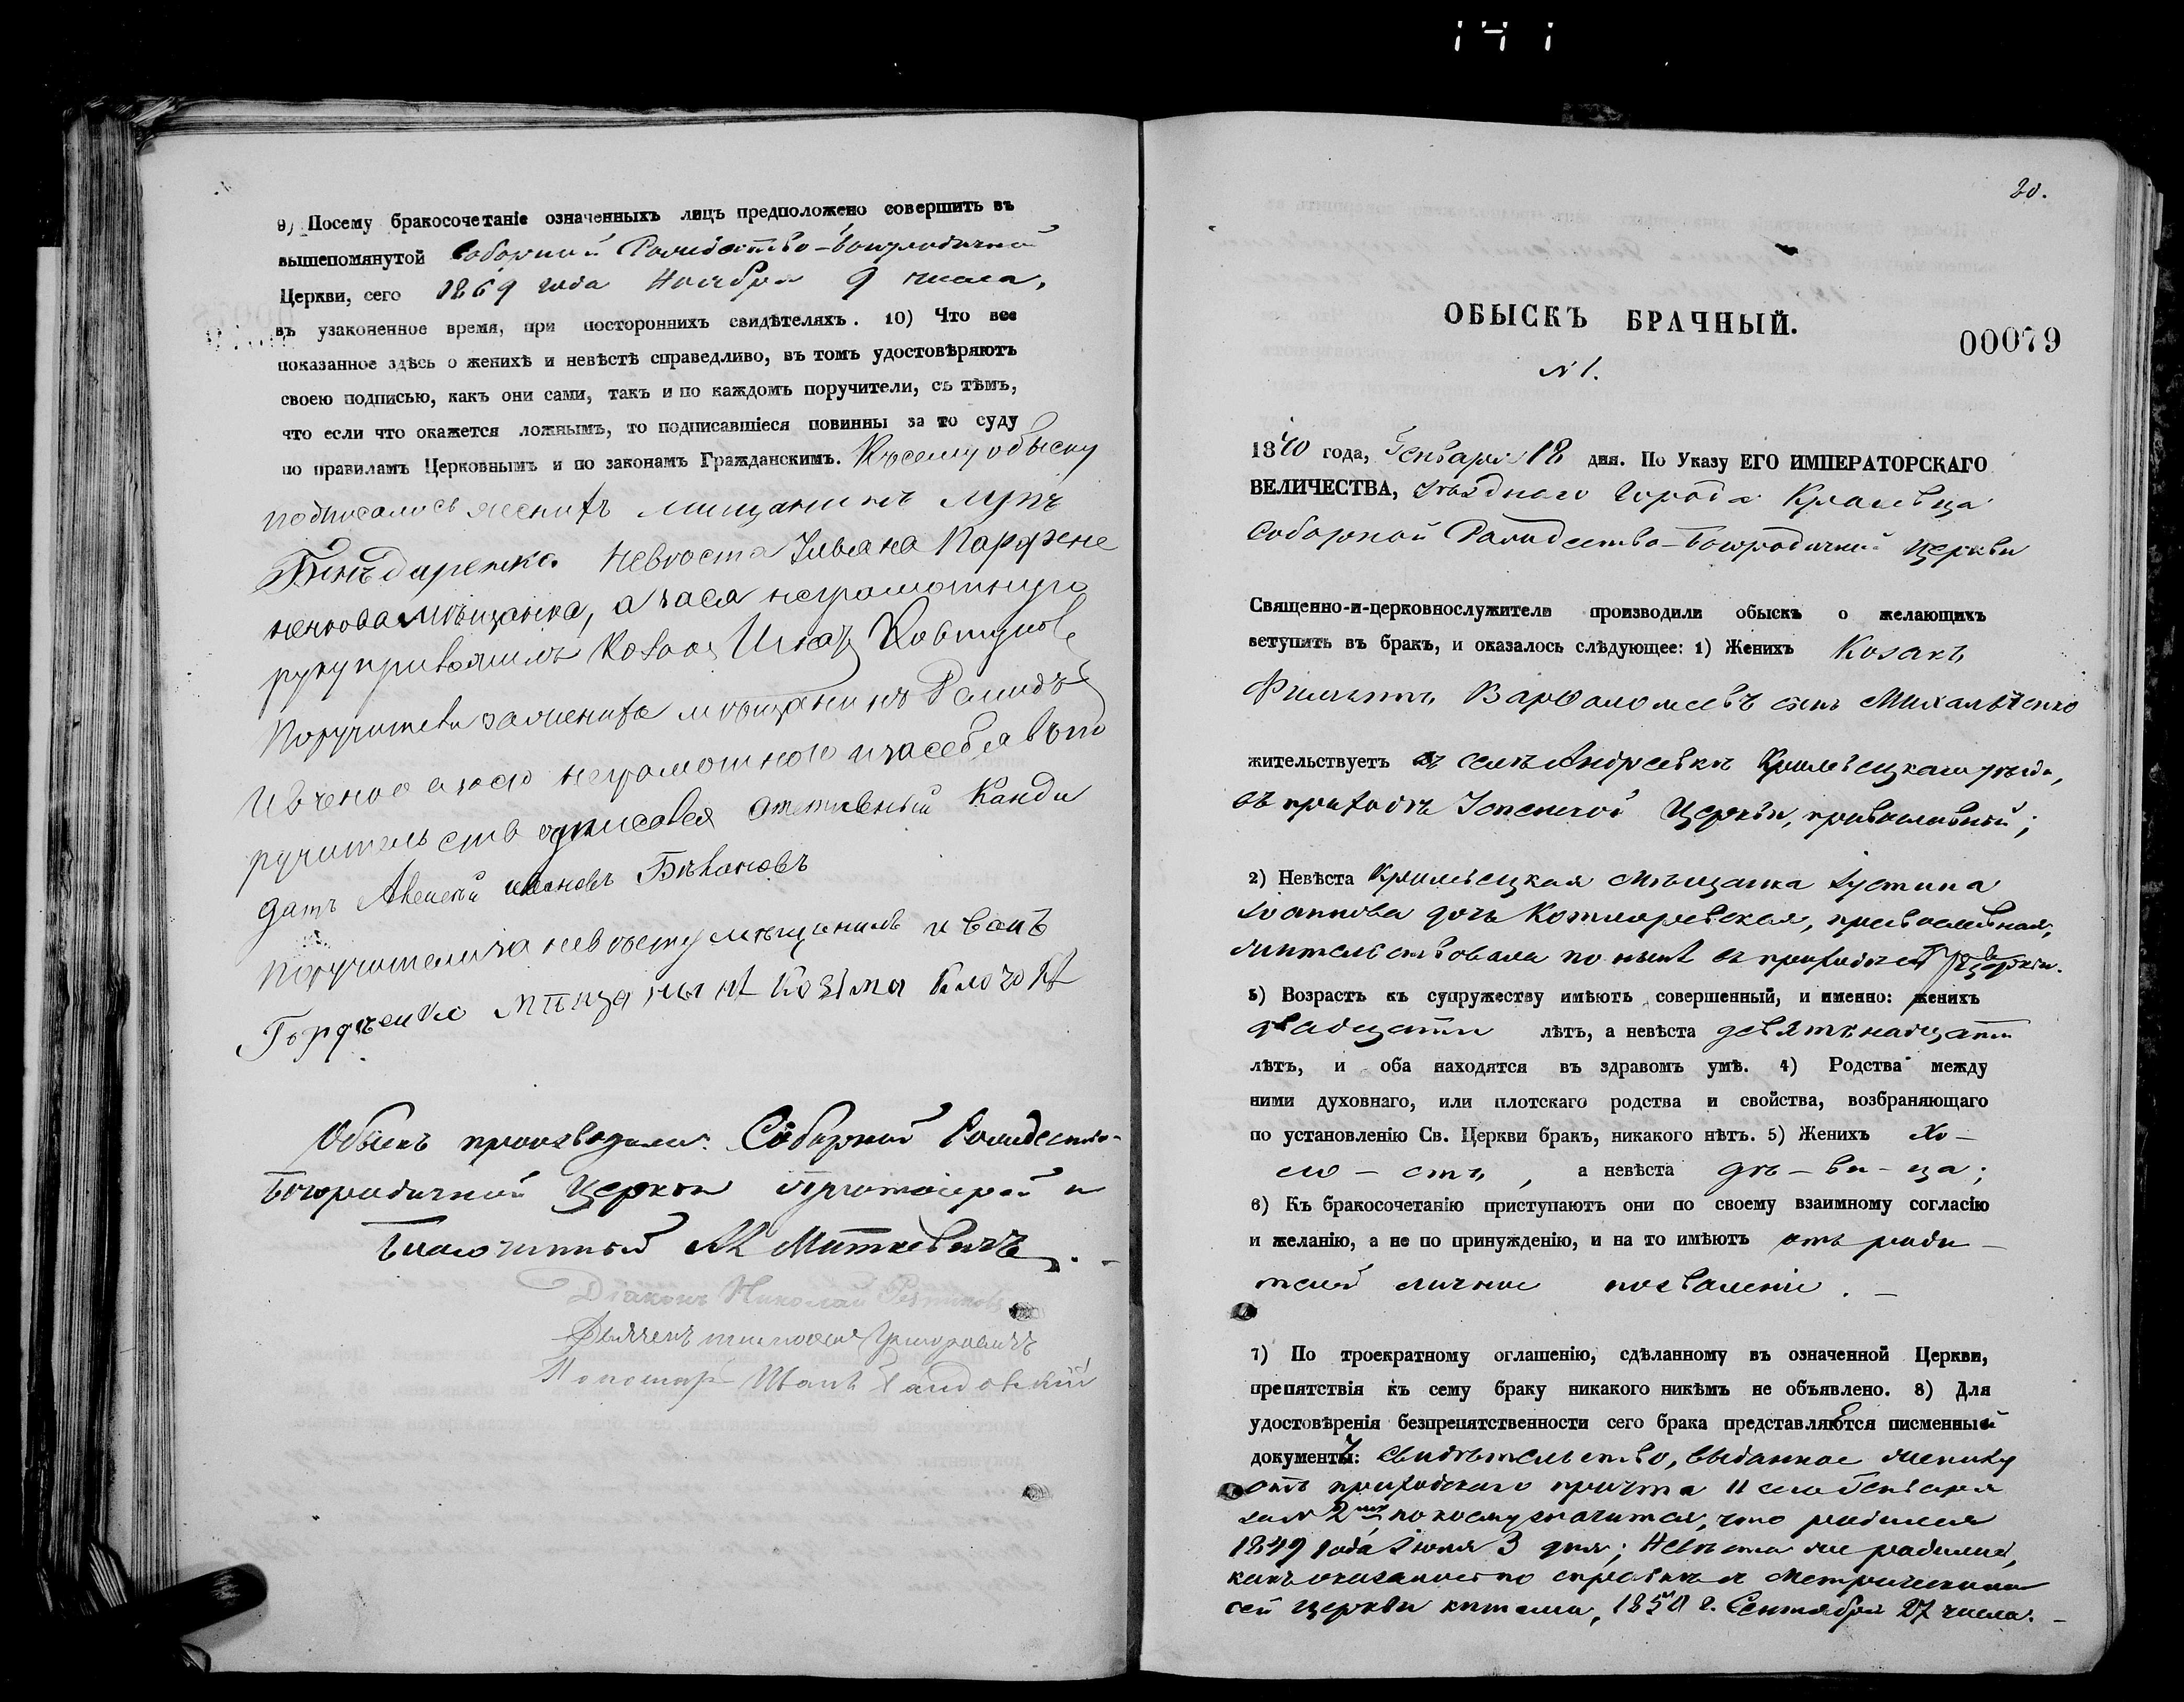 9) Посему бракосочетаніе означенныхъ лицъ предположено совершить въ
вышепомянутой Соборной Рождество-Богородичной
Церкви, сего 1869 года Ноября 9 числа,
въ узаконенное время, при постороннихъ свидѣтеляхъ. 10) Что все
показанное здѣсь о женихѣ и невѣстѣ справедливо, въ томъ удостовѣряютъ
своею подписью, какъ они сами, такъ и по каждомъ поручители, съ тѣмъ,
что если что окажется ложнымъ, то подписавшіеся повинны за то суду
по правиламъ Церковнымъ и по законамъ Гражданскимъ. Ксему обыску
подписалось женихъ мищанинъ
невѣста Ульяна
мѣщанка, а заея неграмотную
руку приложилъ
Поручители зажениха мѣщанинъ
неграмотного изасебя въпо
ручительств Канди
датъ
Поручители занивѣсту мѣщанинъ иванъ
Козма Клочокъ
Обыскъ производили: Соборной Рождество-
Богородичной Церкви Протоіерей и
Благочинный Миткевичъ.
Діаконъ Николай
Пономарь Иванъ
20.
ОБЫСКЪ БРАЧНЫЙ.
00079
N 1.
1870 года, Генваря 18 дня. По Указу ЕГО ИМПЕРАТОРСКАГО
ВЕЛИЧЕСТВА, уѣзднаго города Кролевца
Соборной Рождество-Богородичной Церкви
Священно-и-церковнослужители производили обыскъ о желающихъ
вступить въ бракъ, и оказалось слѣдующее: 1) Женихъ Козакъ
Филиппъ Варѳоломеевъ сынъ Михальченко
жительствуетъ въ селѣ Андреевкѣ Кролевецкаго уѣзда,
въ приходѣ Успенской Церкви, православный;
2) Невѣста Кролевецкая мѣщанка Іустина
Іоаннова дочь Котляревская, православная,
жительствовала по нынѣ въ приходѣ сей Церкви.
3) Возрастъ къ супружеству имѣютъ совершенный, и именно: женихъ
двадцати лѣтъ, а невѣста девятнадцати
лѣтъ, и оба находятся въ здравомъ умѣ. 4) Родства между
ними духовнаго, или плотскаго родства и свойства, возбраняющаго
по установленію Св. Церкви бракъ, никакого нѣтъ. 5) Женихъ хо-
ло-стъ, а невѣста дѣ-ви-ца;
6) Къ бракосочетанію приступаютъ они по своему взаимному согласію
и желанію, а не по принужденію, и на то имѣютъ отъ роди-
телей личное позволеніе.
7) По троекратному оглашенію, сдѣланному въ означенной Церкви,
препятствія къ сему браку никакого никѣмъ не объявлено. 8) Для
удостовѣренія безпрепятственности сего брака представляется писменный
документъ: свидѣтельство, выданное жениху
отъ приходскаго причта 11 сего Генваря
за N 2мъ, по коему значится, что родился
1849 года Іюля 3 дня; Невѣста же родилась,
какъ оказалось по справкѣ съ Метрическими
сей Церкви книгами, 1850 г. Сентября 27 числа.